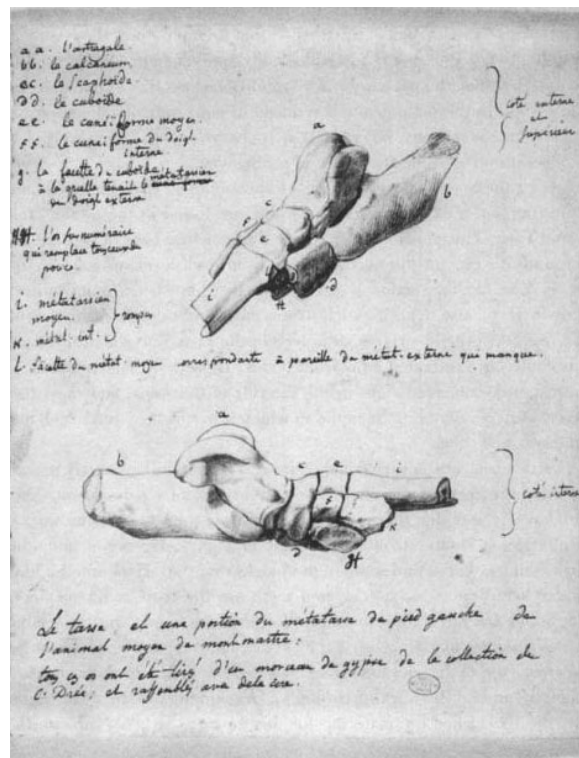 a a. L'astragale.
b b. le calcaneum
c c. le scaphoïde.
d d. le cuboïde
e e. le cunéiforme moyen.
f f. le cuneiforme du doigt
interne
g. la facette du cuboïde
à la quelle tenait le métatarsien
du doigt externe
H H. L'os surnuméraire
qui remplace
pouce
i. métatarsien
moyen.
K. métat. int.
rompus
L. facette du métat. moyen correspondante à pareille du métat. externe qui manque.
coté externe
et
supérieur
a
b
c
f
e
i
H
d
a
b
c
e
i
f
K
d
H
coté interne
Le tarse et une portion du métatarse du pied gauche de
l'animal moyen de montmartre:
tous ces os ont été tiré d'un morceau de gypse de la collection de
C. Drée; et rassemblés avec de la cire.